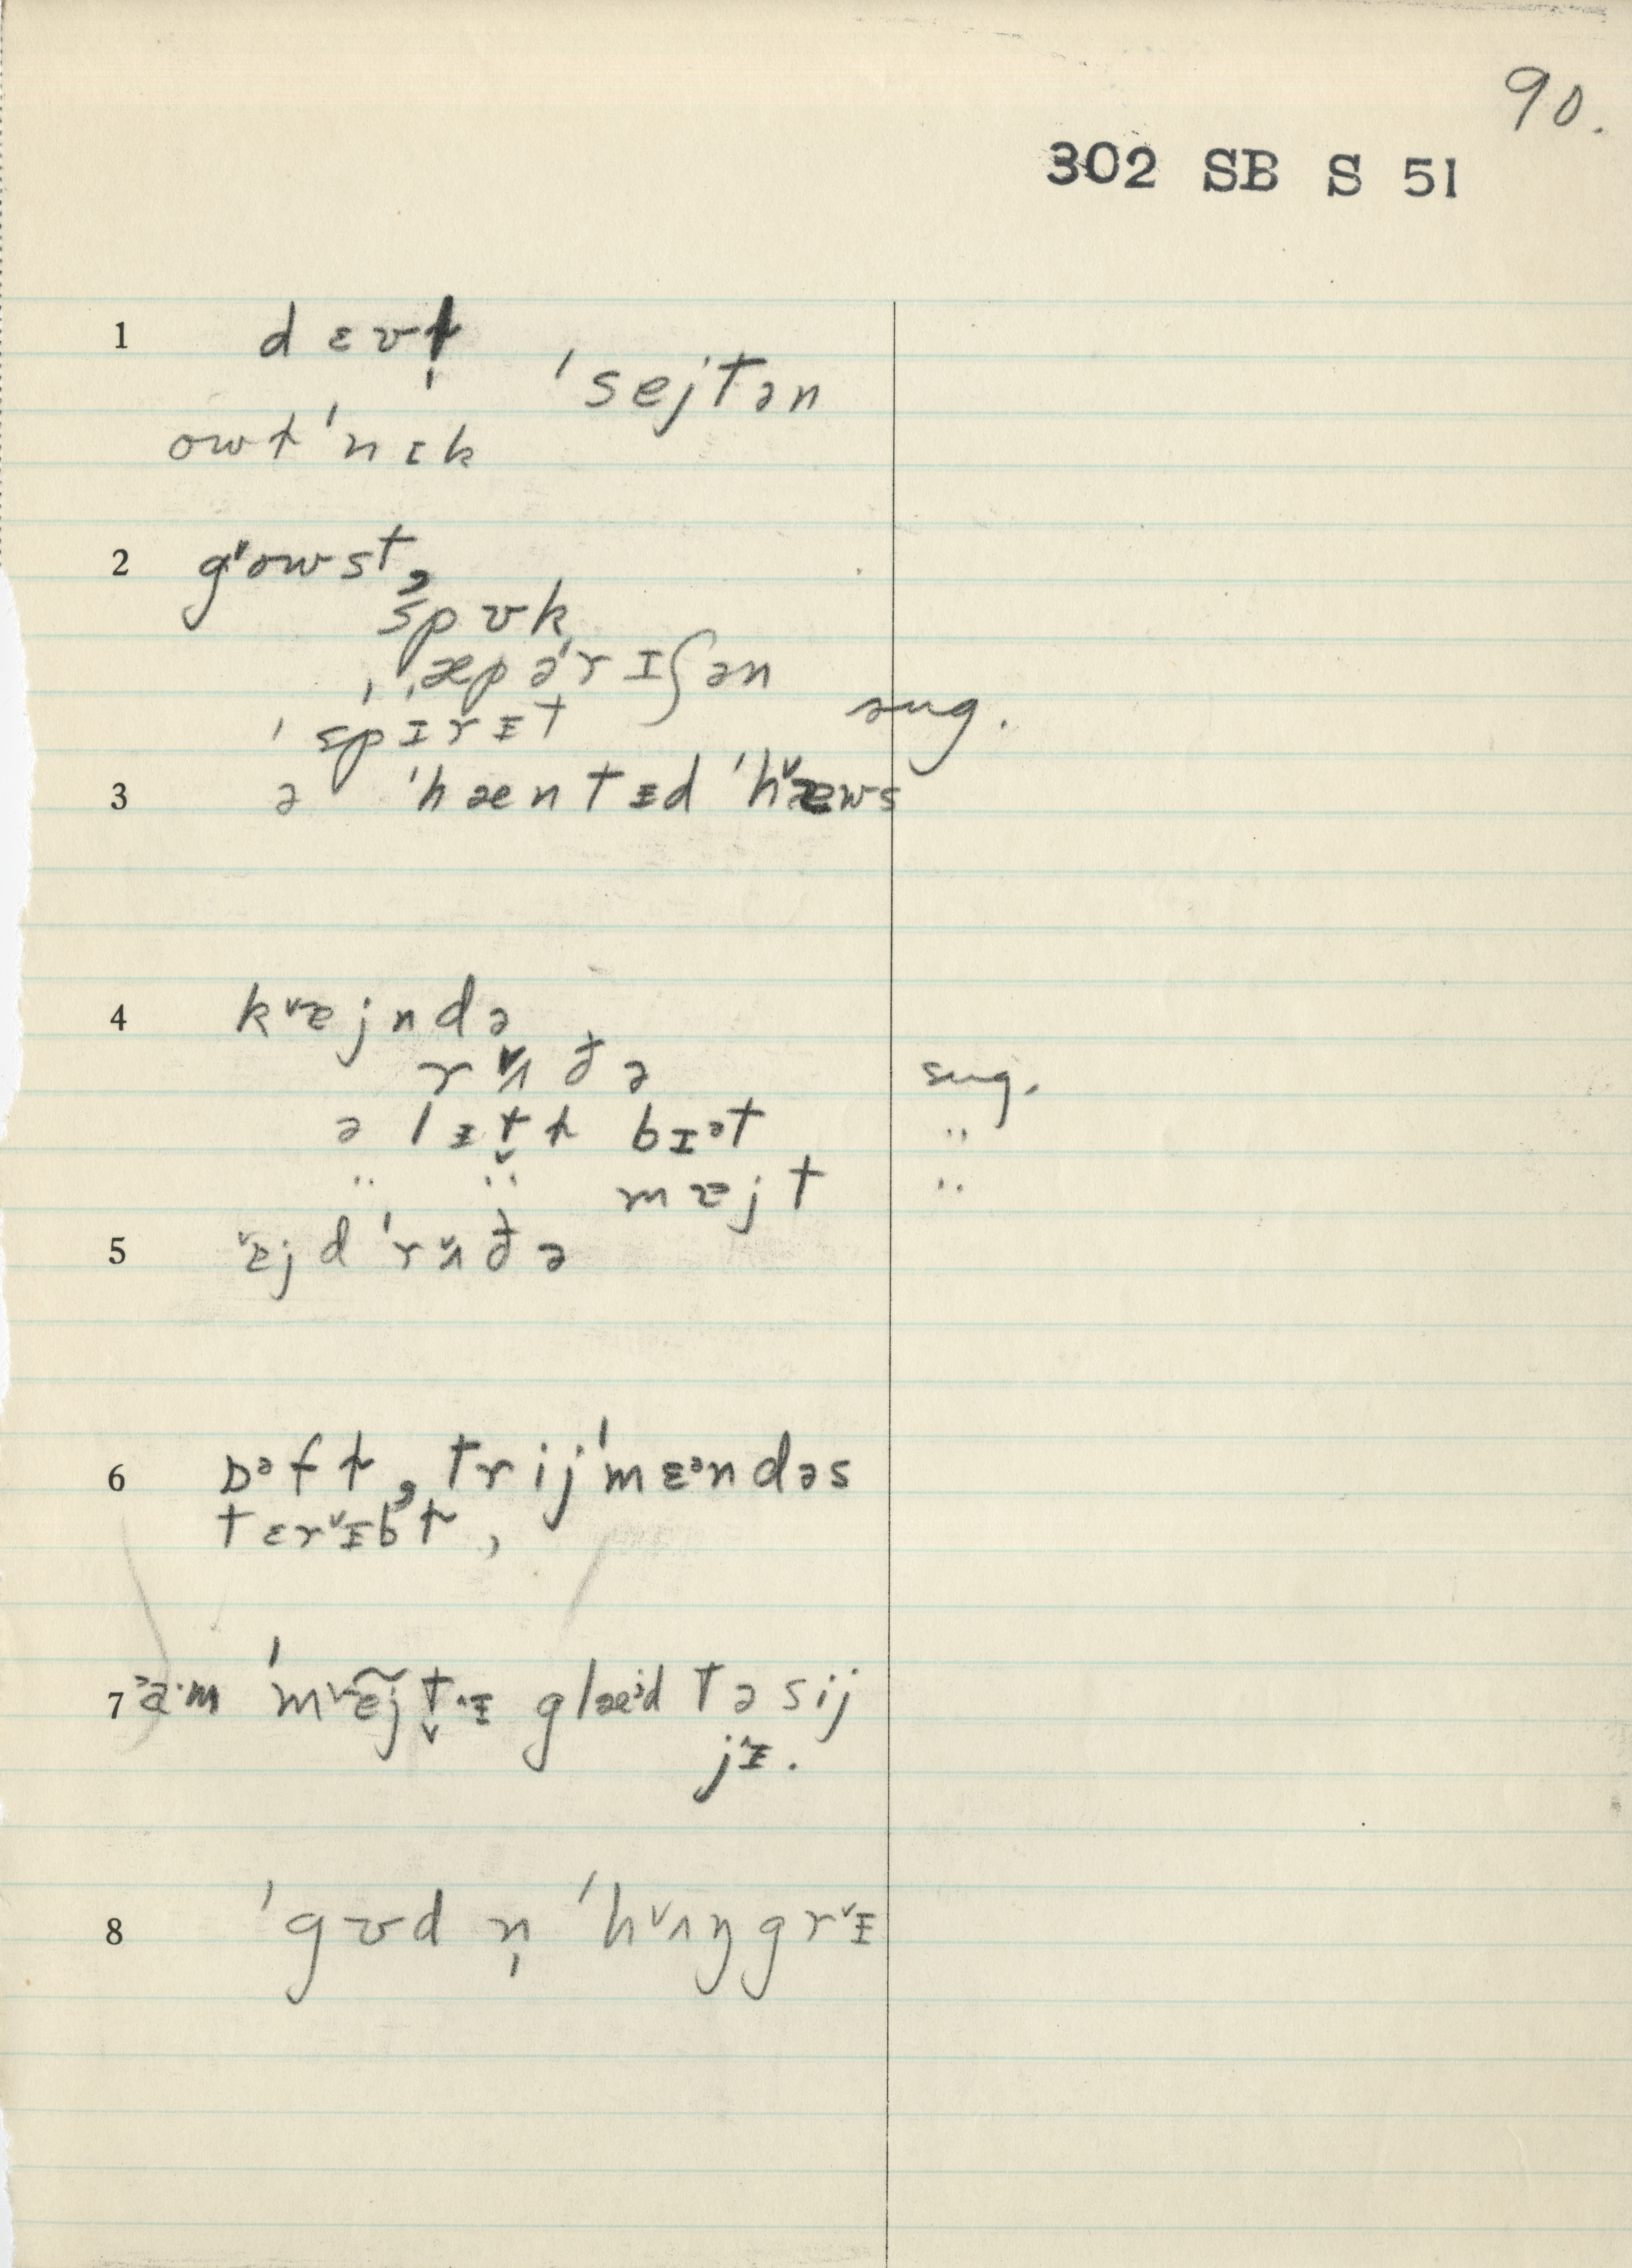 90.
302 SB S 51
1 dɛvɫ̩ ˈsejtən
owɫˈnɪk
2 gˈowst,
spʊk
ˌˌæpəˈrɪʃən
ˈspɪrᵻt sug.
3 ə ˈhæntᵻd ˈhᵛæws
4 kᵛɐjndə
rᵛʌðə sug.
ə lᵻt̬ɫ bɪᵊt "
" " mɐjt "
5 ᵛɐjdˈrᵛʌðə
6 ɒᵊfɫ, trijˈmɛᵊndəs
tɛrᵛᵻbɫ,
7 ᵊa·m ˈmᵛɐ̃j̃t̬ᵛᵻ glæᵊd tə sij
jᵛᵻ.
8 ˈgʊd n̩ ˈhᵛʌŋgrᵛᵻ